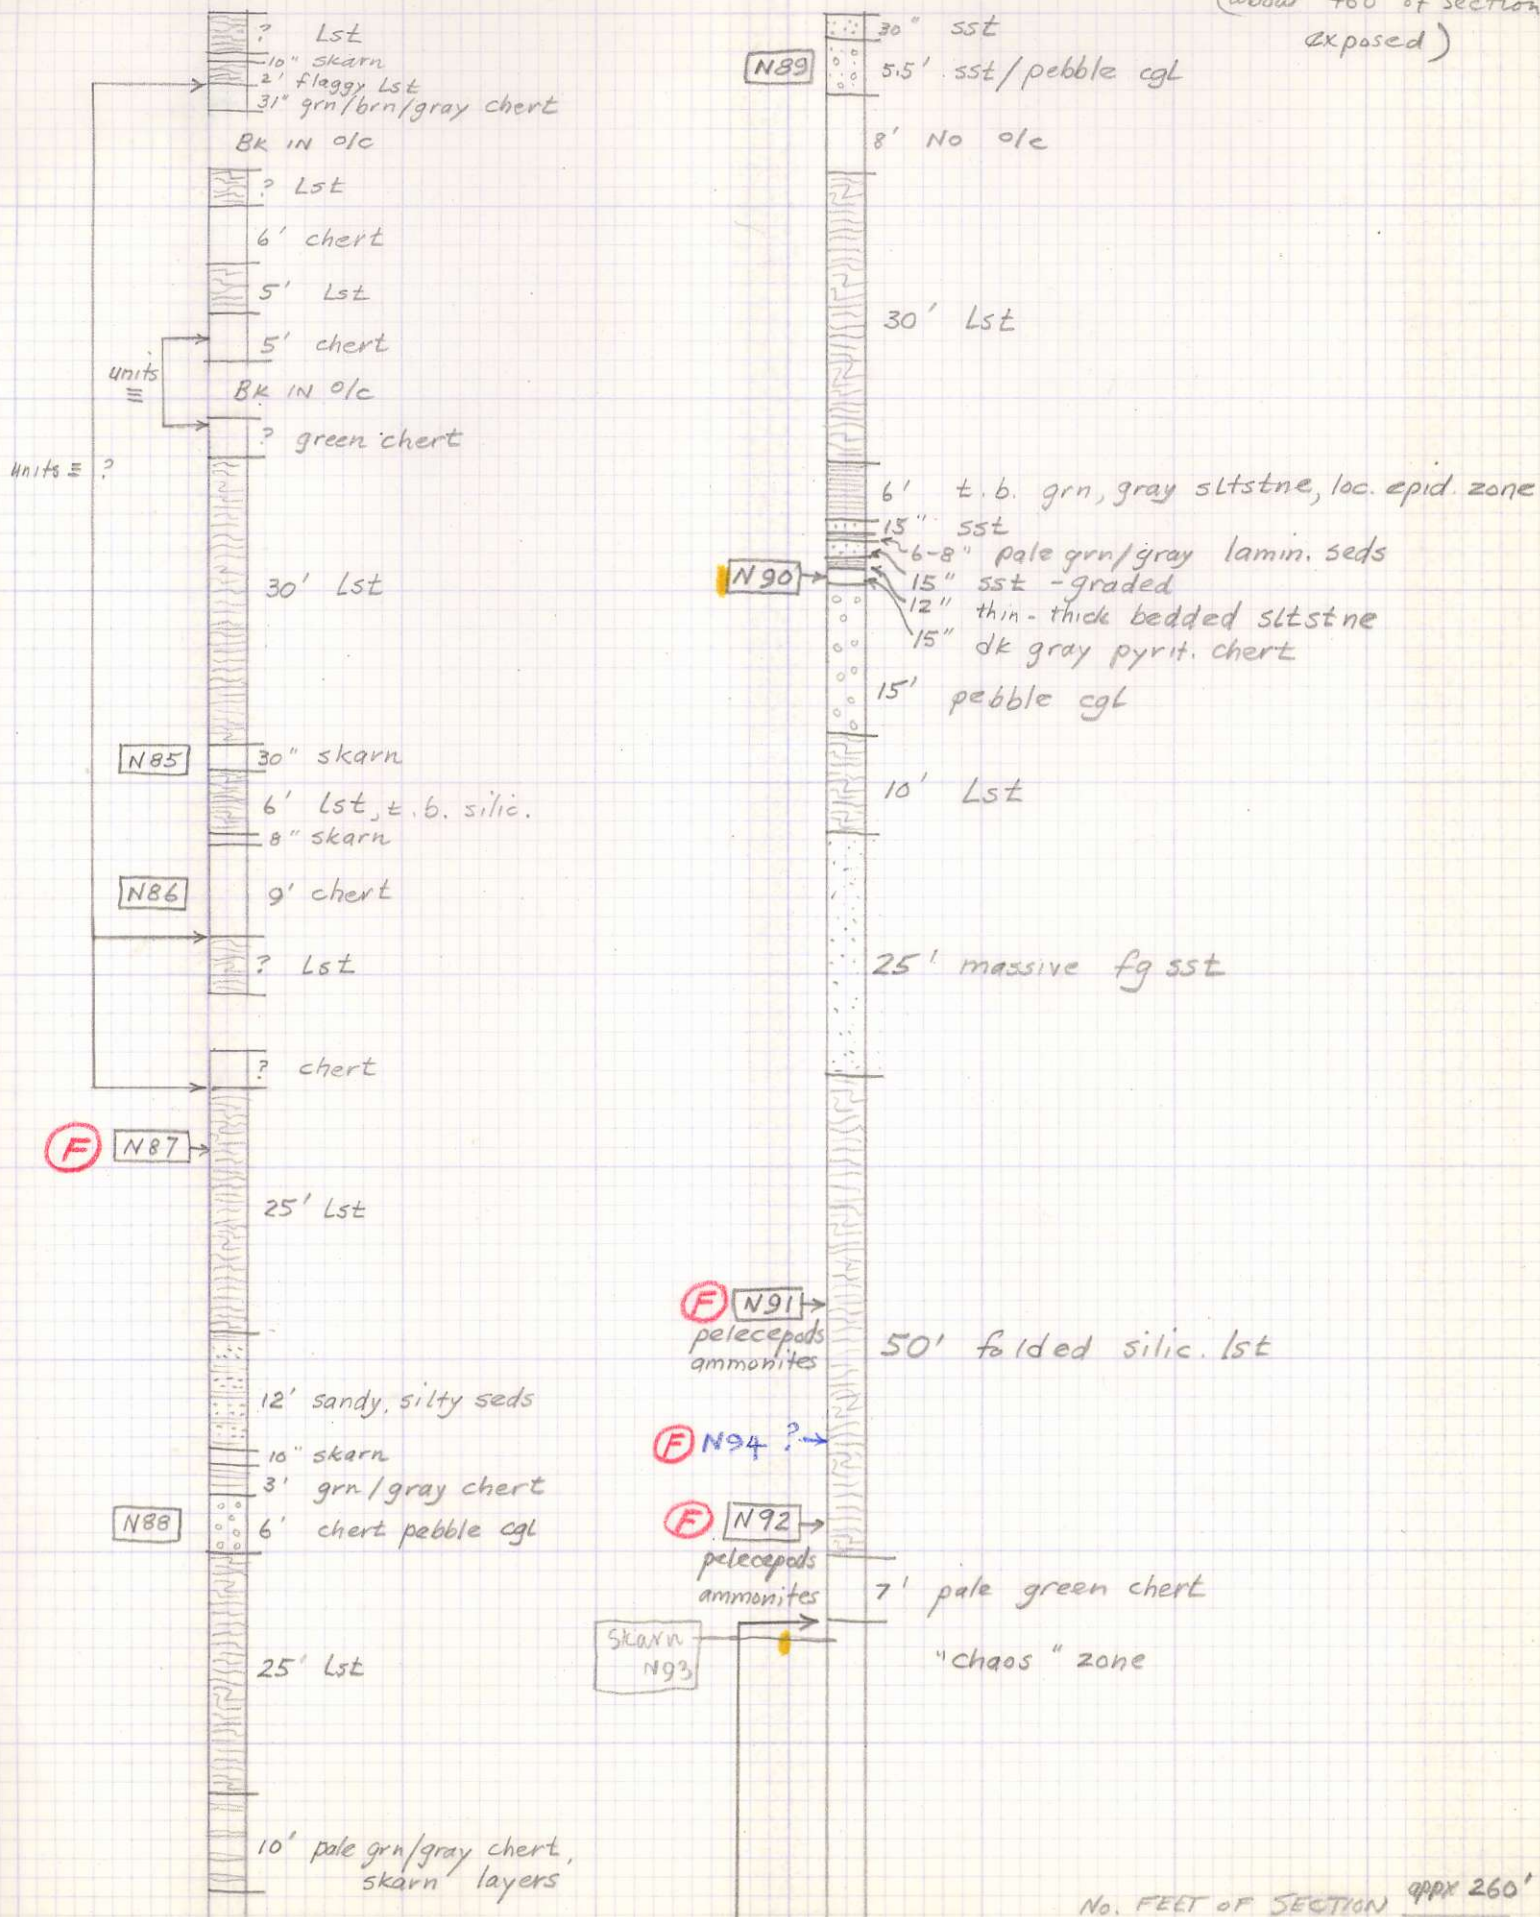 ? Lst
10" skarn
2' flaggy Lst
31" grn/brn/gray chert
BK IN o/c
? Lst
6' chert
5' Lst
5' chert
units
≡
BK IN o/c
? green chert
units ≡ ?
30' Lst
N85
30" skarn
6' lst, t.b. silic.
8" skarn
N86
9' chert
? Lst
? chert
F N87
25' Lst
12' sandy, silty seds
10" skarn
3' grn/gray chert
N88
6' chert pebble cgl
25' Lst
10' pale grn/gray chert,
skarn layers
of section
exposed)
30" sst
N89
5.5' sst/pebble cgl
8' No o/c
30' Lst
6' t.b. grn, gray sltstne, loc. epid. zone
15" sst
6-8" pale grn/gray lamin. seds
N90
15" sst - graded
12" thin-thick bedded sltstne
15" dk gray pyrit. chert
15' pebble cgl
10' Lst
25' massive fg sst
F N91
pelecepods
ammonites
50' folded silic. lst
F N94 ?
F N92
pelecepods
ammonites
7' pale green chert
Skarn
N93
"chaos" zone
No. FEET OF SECTION appx 260'